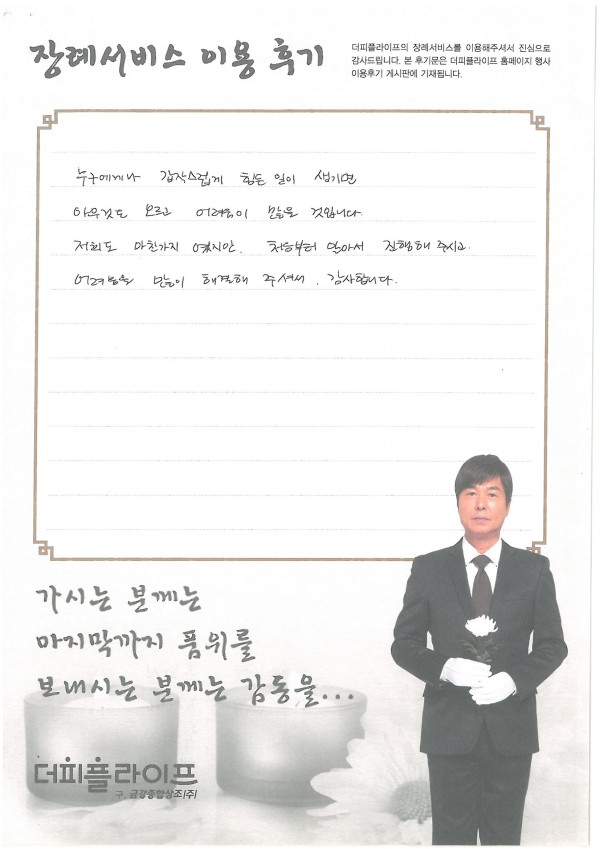 장례서비스 이용 후기
더피플라이프의 장례서비스를 이용해주셔서 진심으로
감사드립니다. 본 후기문은 더피플라이프 홈페이지 행사
이용후기 게시판에 기재됩니다.
누구에게나 갑작스럽게 힘든 일이 생기면
아무것도 모르고 어려움이 많을 것입니다
저희도 마찬가지 였지만, 처음부터 맡아서 진행해 주시고.
어려움을 많이 해결해 주셔서, 감사합니다.
가시는 분께는
마지막까지 품위를
보내시는 분께는 감동을...
더피플라이프
구. 금강종합상조(주)